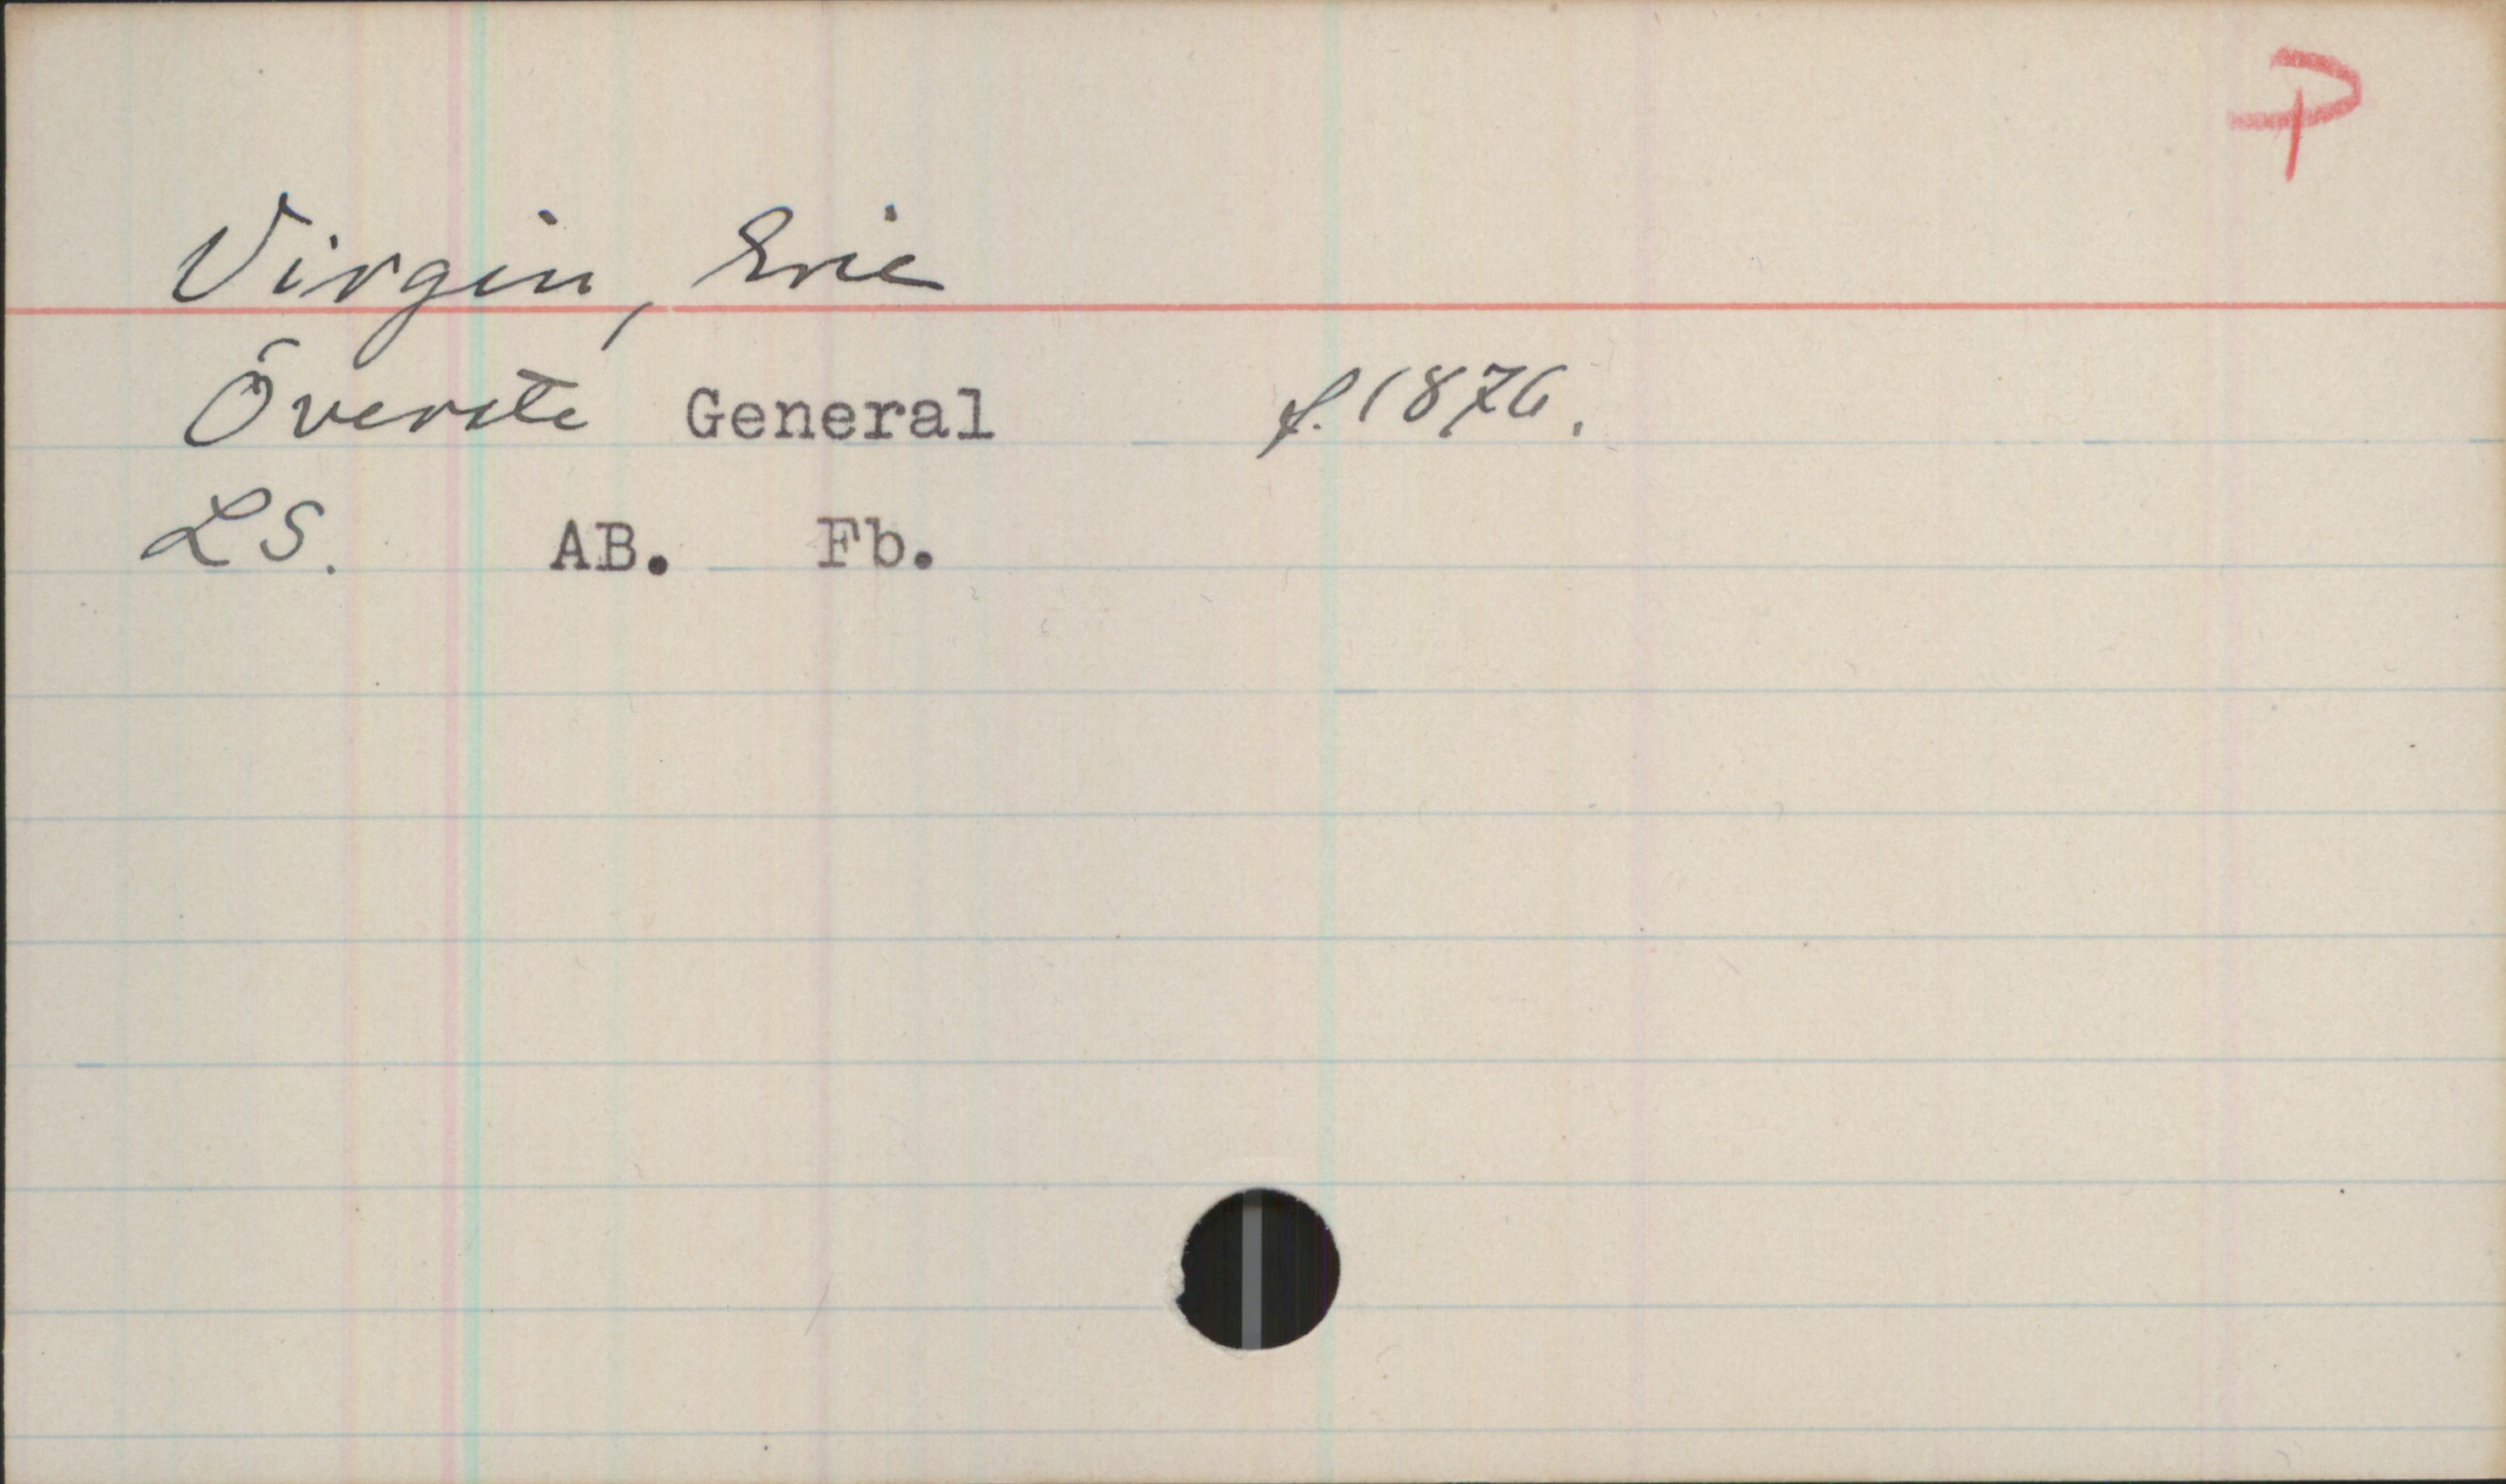 P
Virgin, Eric
Överste General f. 1876.
LS. AB. Fb.